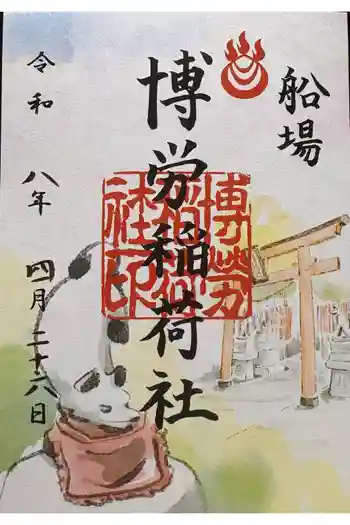 船場
博労稲荷社
博勞稲荷社印
令和八年四月二十八日